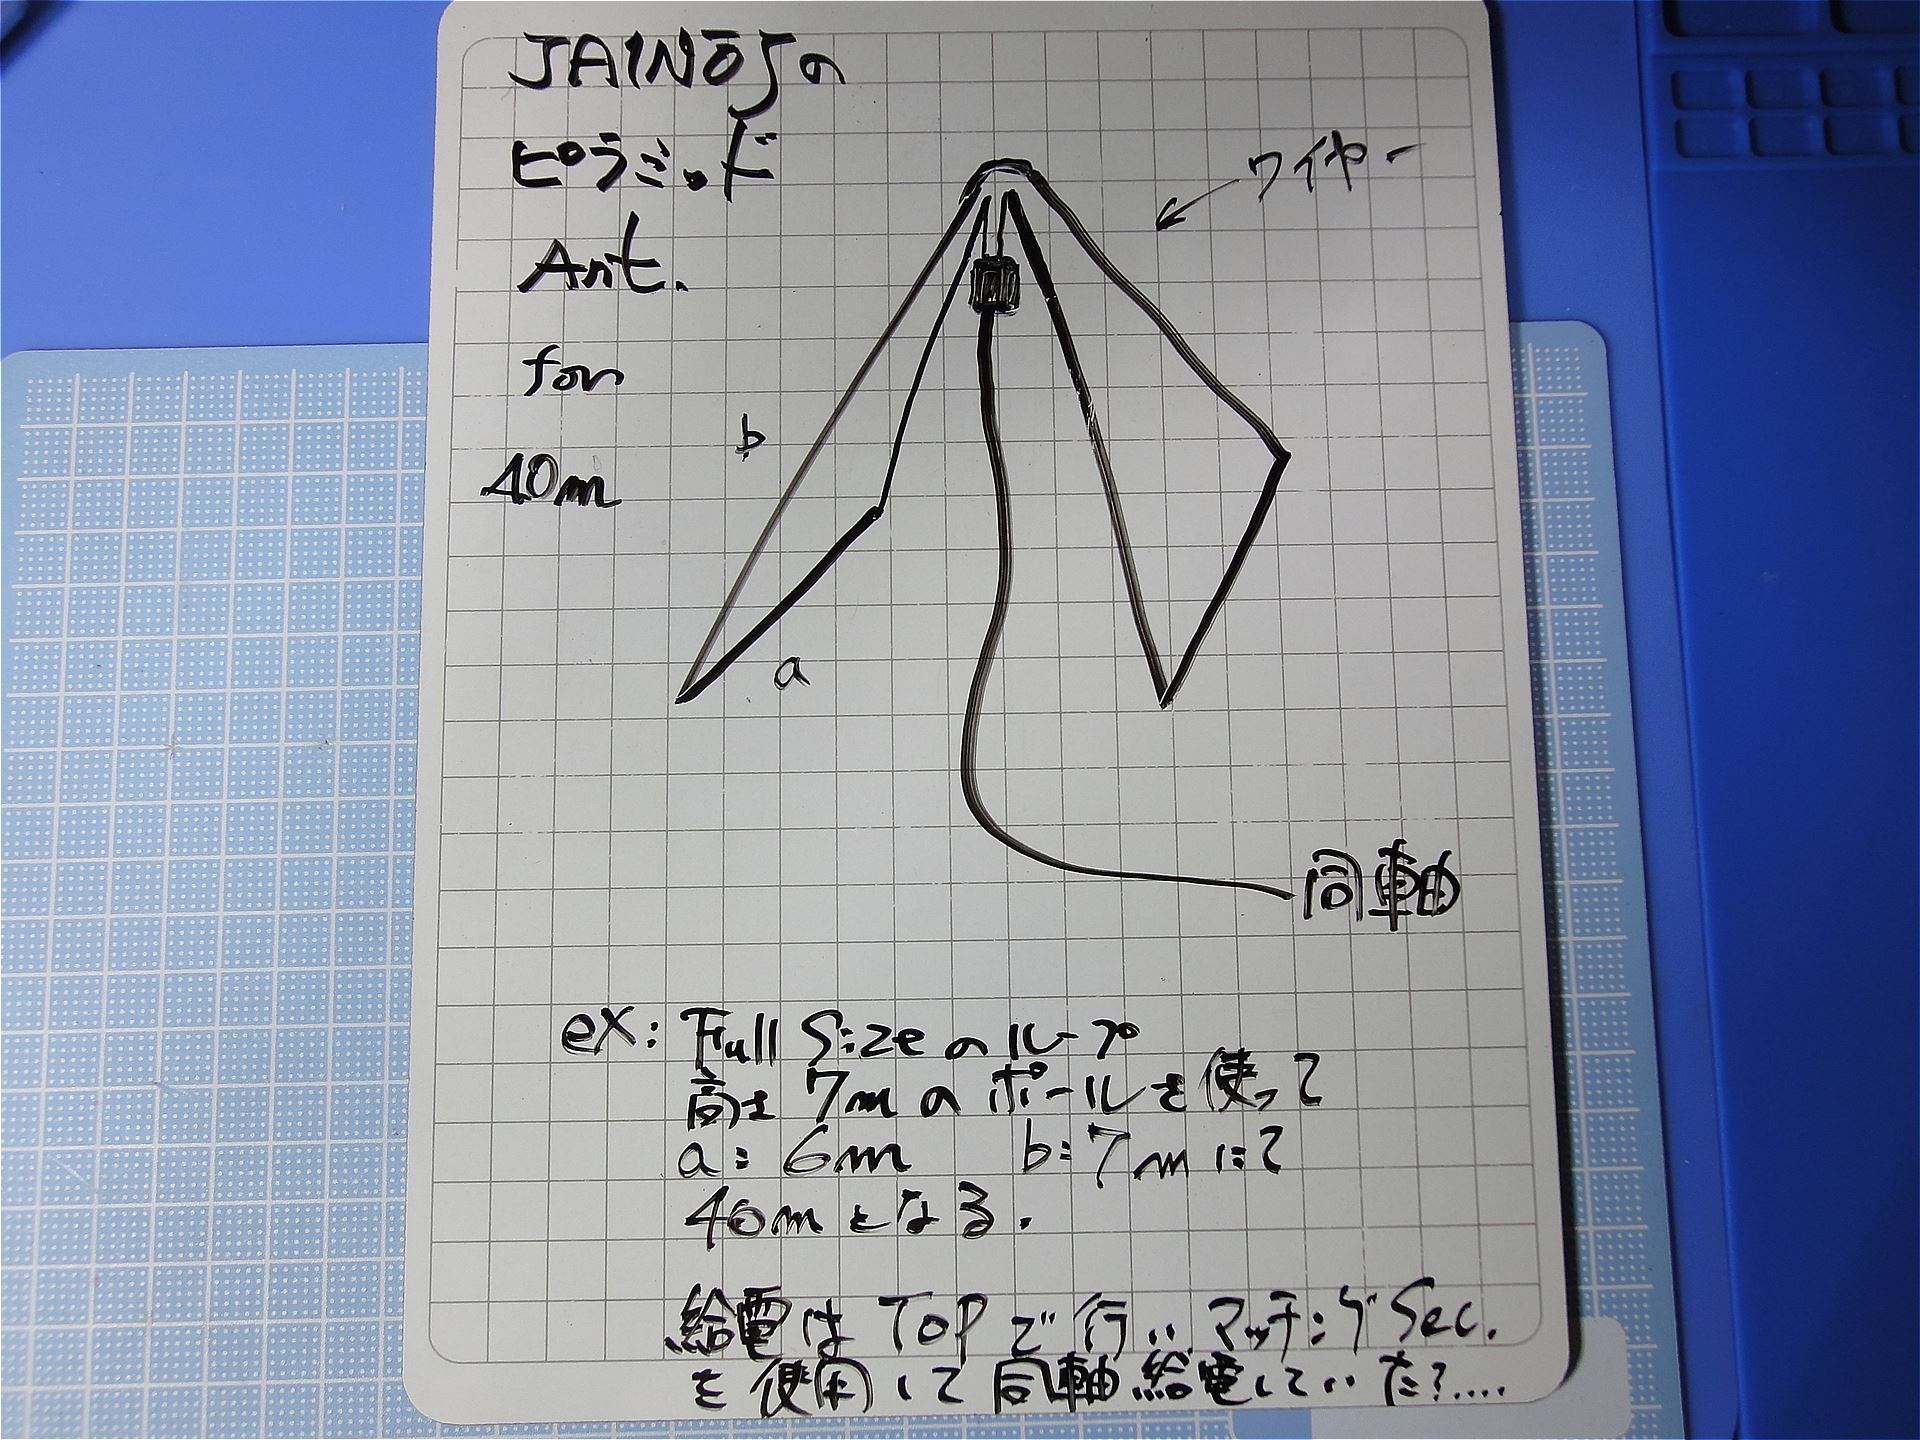 JA1NOJの
ピラミッド
Ant.
for
40m
ワイヤー
b
a
同軸
ex: Full Sizeのループ
高さ 7mのポールを使って
a: 6m b: 7mにて
40mとなる.
給電は TOPで行いマッチングSec.
を使用して同軸給電していた?....